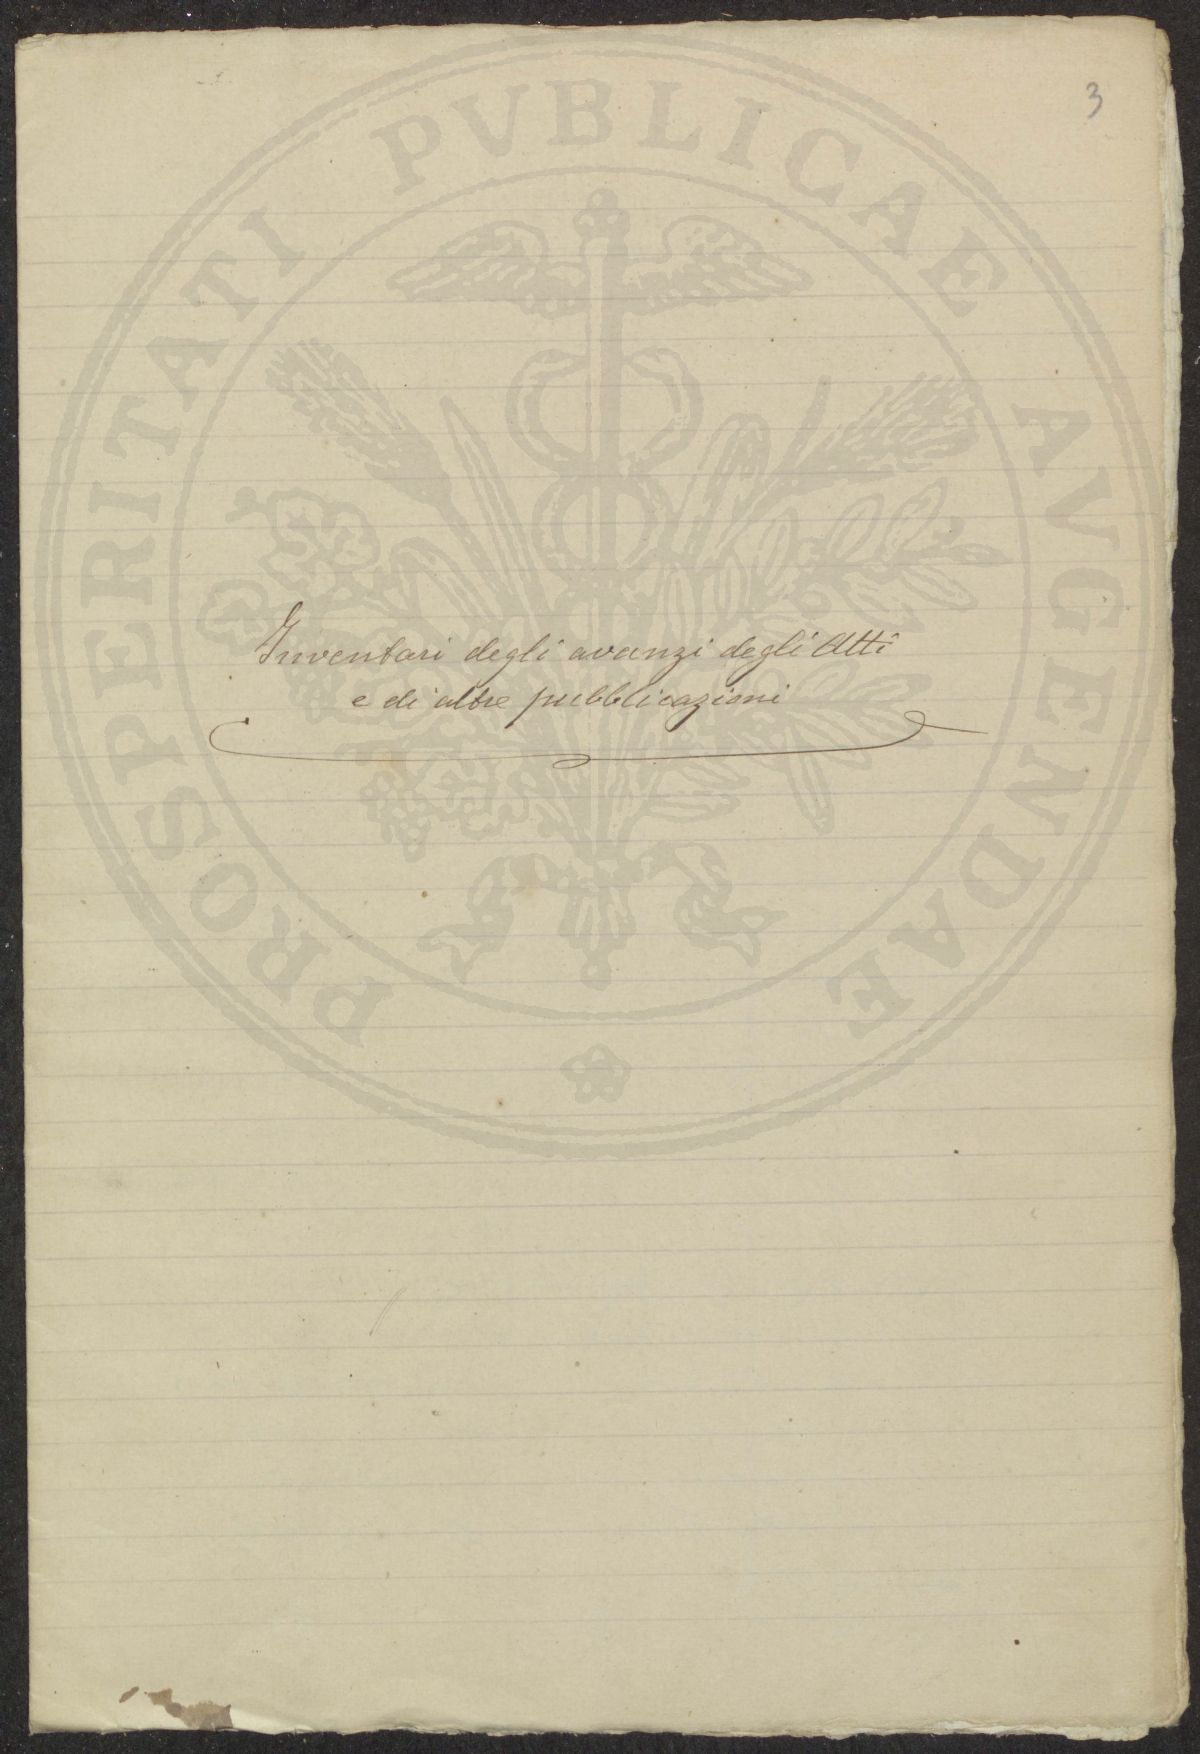 3
PROSPERITATI PVBLICAE AVGENDAE
Inventari degli avanzi degli Atti
e di altre pubblicazioni